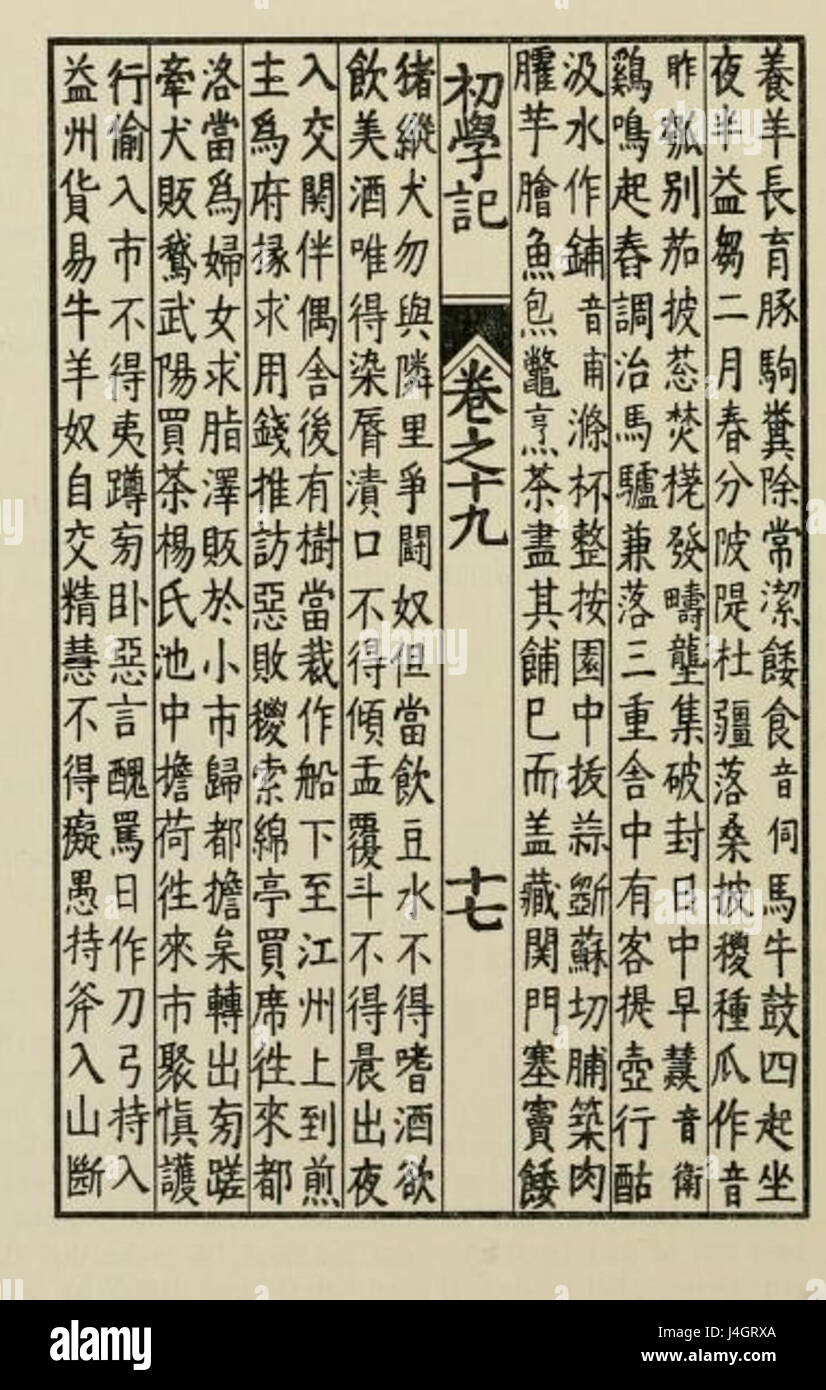 養羊長育豚駒糞除常潔餧食音伺馬牛鼓四起坐
夜半益芻二月春分陂隄杜疆落桑披稯種瓜作音
昨瓠別茄披葱焚槎發疇壟集破封日中早熭音衛
鷄鳴起舂調治馬驢兼落三重舍中有客提壺行酤
汲水作餔音甫滌杯整按園中拔蒜斷蘇切脯築肉
臛芋膾魚炰鼈烹茶盡其餔巳而盖藏関門塞竇餧
初學記 卷之十九 十七
猪縱犬勿與隣里爭鬪奴但當飲豆水不得嗜酒欲
飲美酒唯得染脣漬口不得傾盂覆斗不得晨出夜
入交関伴偶舍後有樹當裁作船下至江州上到煎
主爲府掾求用錢推訪惡敗稯索綿亭買席徃來都
洛當爲婦女求脂澤販於小市歸都擔枲轉出旁蹉
牽犬販鵞武陽買茶楊氏池中擔荷徃來市聚愼護
行偷入市不得夷蹲旁臥惡言醜罵日作刀弓持入
益州貨易牛羊奴自交精慧不得癡愚持斧入山斷
alamy
Image ID: J4GRXA
www.alamy.com